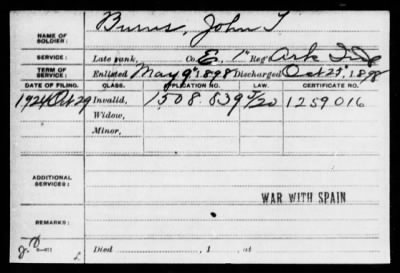 NAME OF SOLDIER: Burns, John T
SERVICE: Late rank, Co. E, 1" Reg't Ark Inf
TERM OF SERVICE: Enlisted May 9", 1898 Discharged Oct 25", 1898
DATE OF FILING. CLASS. APPLICATION NO. LAW. CERTIFICATE NO.
1924 Oct 29 Invalid, 1508.839 1259016
Widow,
Minor,
ADDITIONAL SERVICES:
WAR WITH SPAIN
REMARKS:
Died , 1 , at